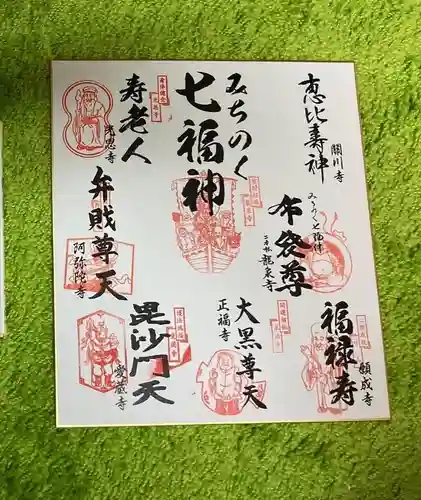 恵比寿神
關川寺
みちのく
七福神
寿老人
光恩寺
みちのく七福神
布袋尊
龍泉寺
弁財尊天
阿弥陀寺
福禄寿
願成寺
大黒尊天
正福寺
毘沙門天
愛蔵寺